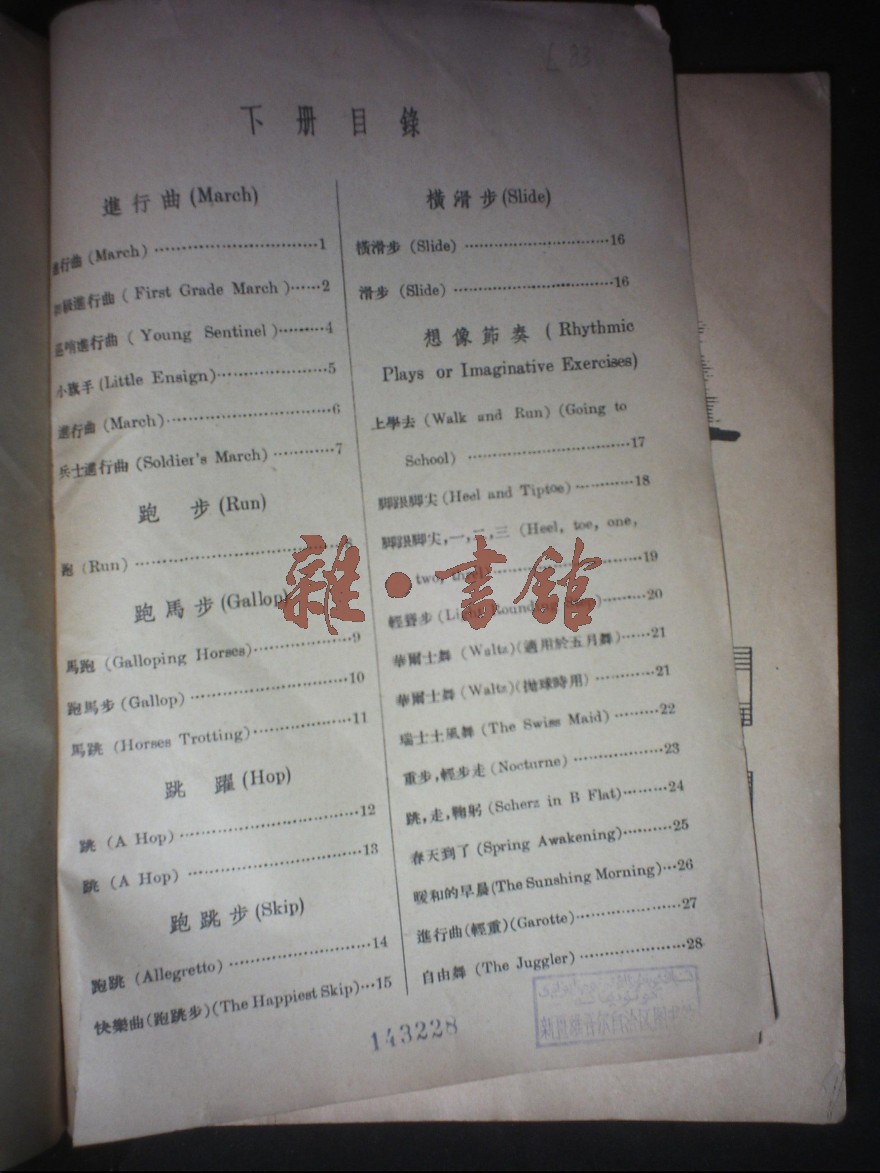 下册目錄
進行曲 (March)
進行曲 (March) ································1
初級進行曲 ( First Grade March )······2
行曲 ( Young Sentinel )·········4
小旗手 (Little Ensign)·····················5
進行曲 (March)································6
兵士進行曲 (Soldier's March) ············7
跑 步 (Run)
跑 (Run) ········································
跑馬步 (Gallop)
馬跑 (Galloping Horses)····················9
跑馬步 (Gallop) ······························10
馬跳 (Horses Trotting)······················11
跳 躍 (Hop)
跳 (A Hop) ···································12
跳 (A Hop) ···································13
跑跳步 (Skip)
跑跳 (Allegretto) ····························14
快樂曲(跑跳步)(The Happiest Skip)···15
橫滑步 (Slide)
橫滑步 (Slide) ·····························16
滑步 (Slide) ································16
想像節奏 ( Rhythmic
Plays or Imaginative Exercises)
上學去 (Walk and Run) (Going to
School) ································17
脚跟脚尖 (Heel and Tiptoe) ············18
脚跟脚尖,一,二,三 (Heel, toe, one,
two, ································19
輕聲步 ·········20
華爾士舞 (Waltz)(適用於五月舞)······21
華爾士舞 (Waltz)(拋球時用) ············21
瑞士土風舞 (The Swiss Maid) ·········22
重步,輕步走 (Nocturne) ··················23
跳,走,鞠躬 (Scherz in B Flat)·········24
春天到了 (Spring Awakening)··········25
暖和的早晨 (The Sunshing Morning)···26
進行曲(輕重)(Garotte)·····················27
自由舞 (The Juggler) ·····················28
143228
雜·書舘